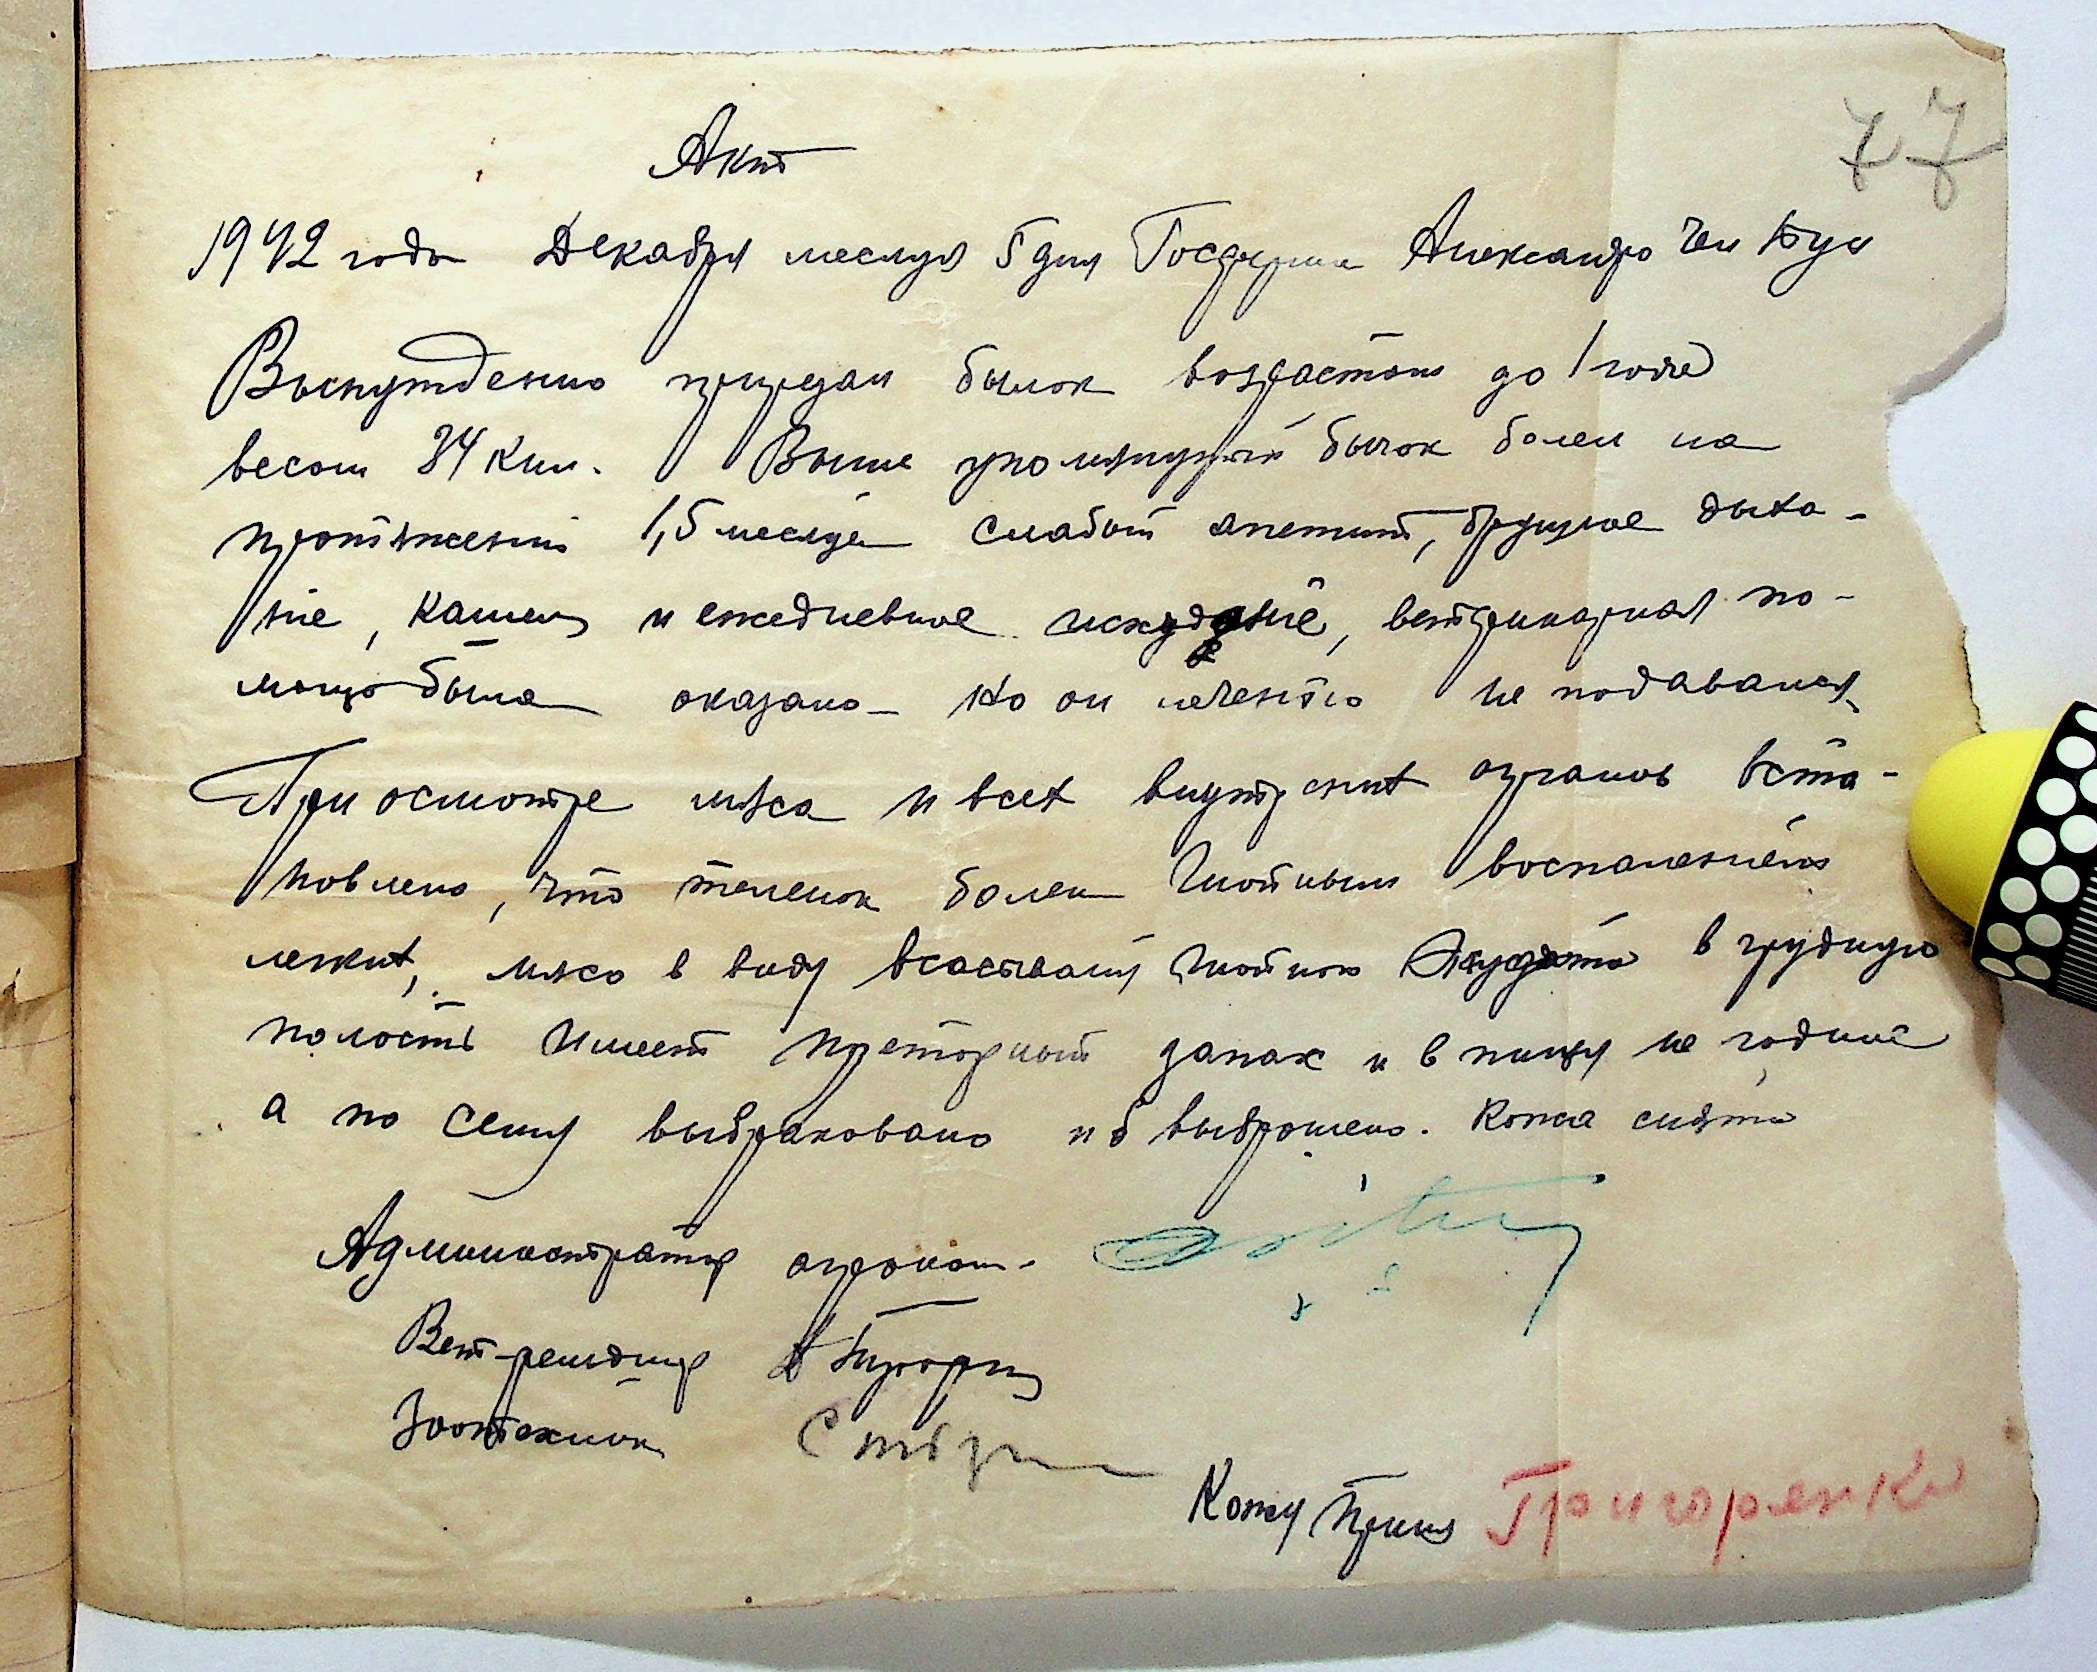 77
Акт
1942 года Декабря месяца 5 дня Госферма Александро
Вынужденно прирезан бычок возрастом до 1 года
весом 34 кил. Выше упомянутый бычок болел на
протяжении 1,5 месяца слабый апетит, брюшное дыха-
ние, кашель и ежедневное исхудание, ветеринарная по-
мощь была оказана но он лечению не подавался
При осмотре мяса и всех внутрених органов уста-
новлено, что теленок болел гнойным воспалением
легких, мясо в виду всасываний гнойного Эксудата в грудную
полость имеет притторный запах и в пищу не годное
а по сему выбраковано и выброшено. Кожа снята
Администратор агроном.
Вет-фельдшер
Зоотехник
Кожу принял Григоренко